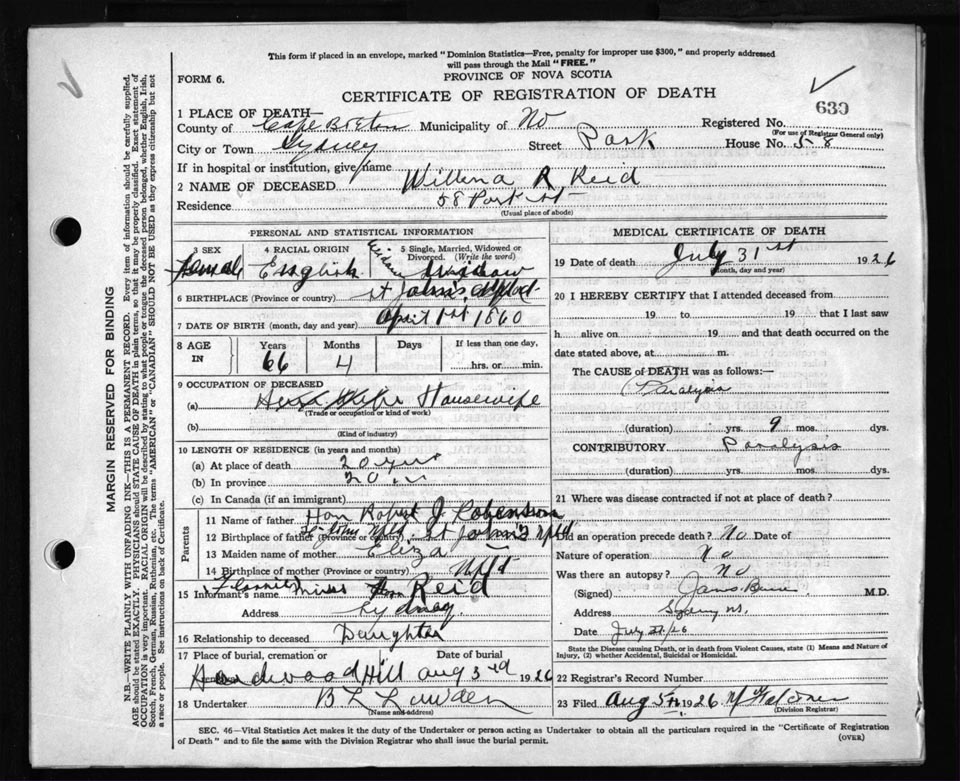 This form if placed in an envelope, marked "Dominion Statistics—Free, penalty for improper use $300," and properly addressed
will pass through the Mail "FREE."
FORM 6.
PROVINCE OF NOVA SCOTIA
CERTIFICATE OF REGISTRATION OF DEATH
630
1 PLACE OF DEATH
County of Cape Breton Municipality of No Registered No.
(For use of Registrar General only)
City or Town Sydney Street Park House No. 58
If in hospital or institution, give name
2 NAME OF DECEASED Willena R Reid
Residence 58 Park St
(Usual place of abode)
PERSONAL AND STATISTICAL INFORMATION
3 SEX
Female
4 RACIAL ORIGIN
English
5 Single, Married, Widowed or Divorced. (Write the word)
Widow
6 BIRTHPLACE (Province or country) St John's, Nfld.
7 DATE OF BIRTH (month, day and year) April 1st 1860
8 AGE IN
Years 66
Months 4
Days
If less than one day,
hrs. or min.
9 OCCUPATION OF DECEASED
(a) Housewife
(Trade or occupation or kind of work)
(b)
(Kind of industry)
10 LENGTH OF RESIDENCE (in years and months)
(a) At place of death 20 yrs
(b) In province 20 "
(c) In Canada (if an immigrant)
Parents
11 Name of father Hon Robert J.
12 Birthplace of father (Province or country) St John's Nfld
13 Maiden name of mother Eliza —
14 Birthplace of mother (Province or country) Nfld
15 Informant's name Miss Reid
Address Sydney
16 Relationship to deceased Daughter
17 Place of burial, cremation or Date of burial
Hardwood Hill Aug 3rd 1926
18 Undertaker
(Name and address)
MEDICAL CERTIFICATE OF DEATH
19 Date of death July 31st 1926
(Month, day and year)
20 I HEREBY CERTIFY that I attended deceased from
19 to 19 that I last saw
h alive on 19 and that death occurred on the
date stated above, at m.
The CAUSE of DEATH was as follows:—
Paralysis
(duration) yrs. 9 mos. dys.
CONTRIBUTORY Paralysis
(duration) yrs. mos. dys.
21 Where was disease contracted if not at place of death?
Did an operation precede death? No Date of
Nature of operation No
Was there an autopsy? No
(Signed) M.D.
Address Sydney NS.
Date July
State the Disease causing Death, or in death from Violent Causes, state (1) Means and Nature of Injury, (2) whether Accidental, Suicidal or Homicidal.
22 Registrar's Record Number
23 Filed Aug 5th 1926
(Division Registrar)
SEC. 46—Vital Statistics Act makes it the duty of the Undertaker or person acting as Undertaker to obtain all the particulars required in the "Certificate of Registration
of Death" and to file the same with the Division Registrar who shall issue the burial permit.
(OVER)
MARGIN RESERVED FOR BINDING
N.B.—WRITE PLAINLY WITH UNFADING INK—THIS IS A PERMANENT RECORD. Every item of information should be carefully supplied.
AGE should be stated EXACTLY. PHYSICIANS should STATE CAUSE OF DEATH in plain terms, so that it may be properly classified. Exact statement of
OCCUPATION is very important. RACIAL ORIGIN will be described by stating to what people or tongue the deceased person belonged, whether English, Irish,
Scotch, French, German, Russian, Ruthenian, etc. The terms "AMERICAN" or "CANADIAN" SHOULD NOT BE USED as they express citizenship but not
a race or people. See instructions on back of Certificate.